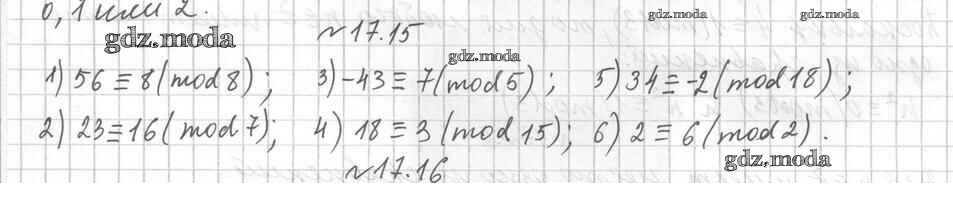 0, 1 или 2.
gdz.moda
№17.15
gdz.moda
gdz.moda
gdz.moda
1) 56 ≡ 8 (mod 8); 3) -43 ≡ 7 (mod 5); 5) 34 ≡ -2 (mod 18);
2) 23 ≡ 16 (mod 7); 4) 18 ≡ 3 (mod 15); 6) 2 ≡ 6 (mod 2).
№17.16
gdz.moda